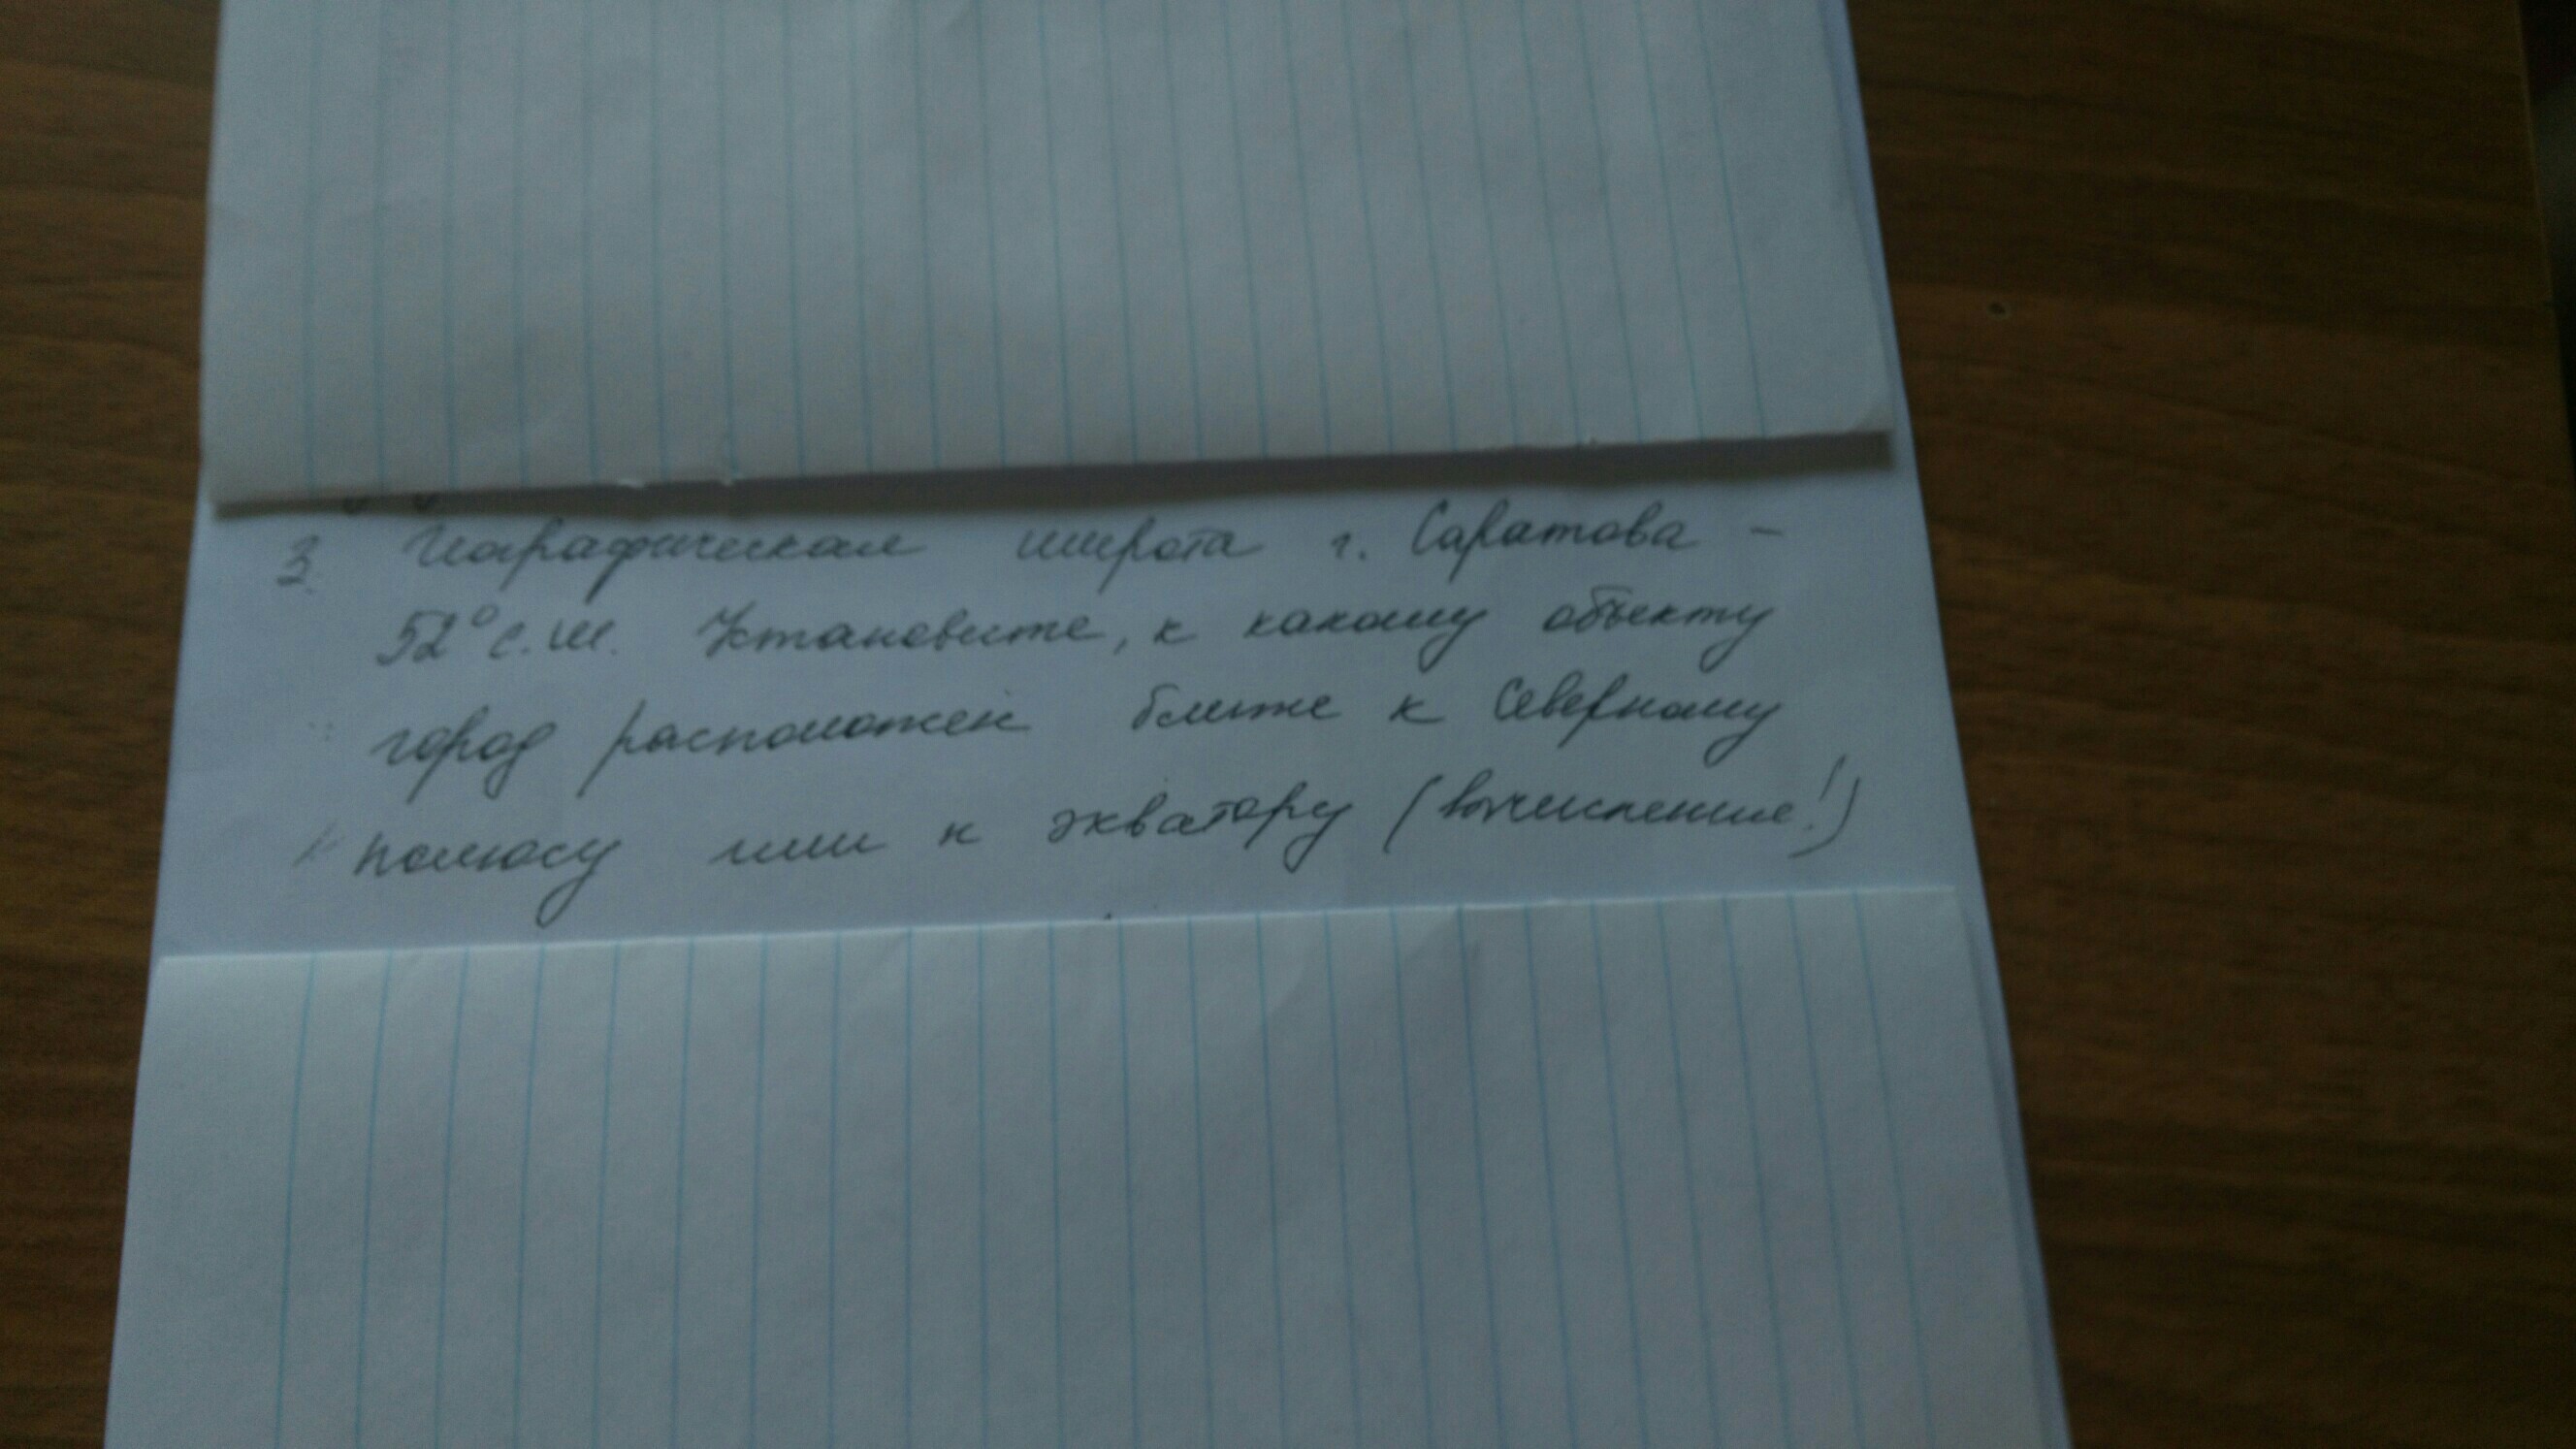 3. Географическая широта г. Саратова –
52° с.ш. Установите, к какому объекту
город расположен ближе к Северному
полюсу или к экватору (вычисление!)